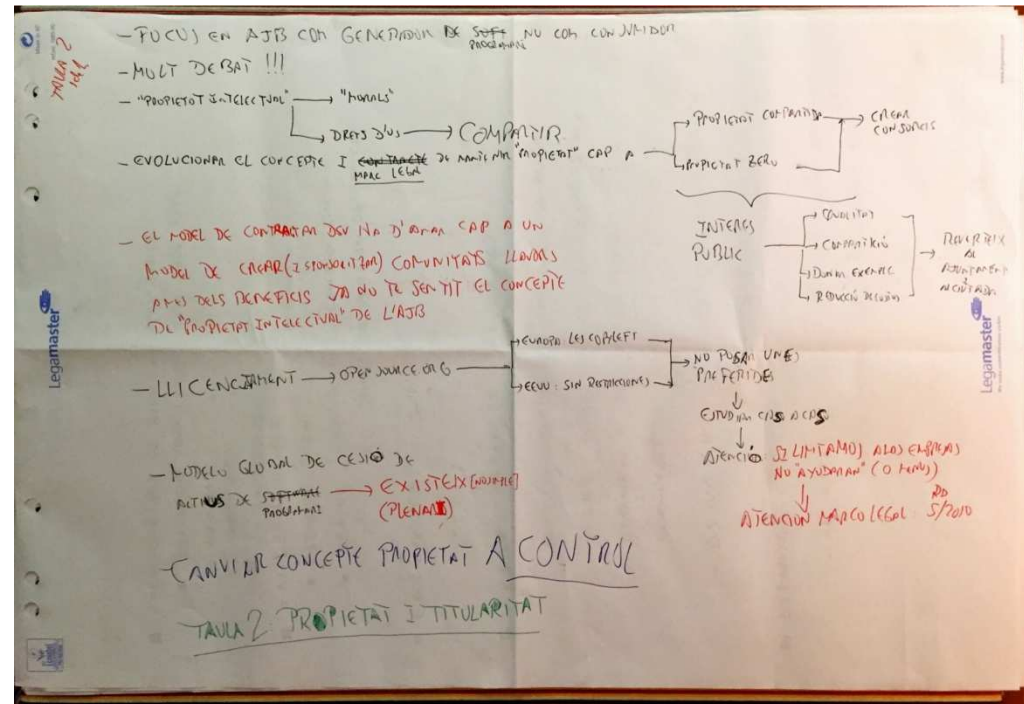 TAULA 2
1 de 2
- FOCUS EN AJB COM GENERADOR DE SOFT NO COM CONSUMIDOR
PROGRAMARI
- MOLT DEBAT !!!
- "PROPIETAT INTELECTUAL" → "MORALS"
→ DRETS D'US → COMPARTIR
- EVOLUCIONAR EL CONCEPTE I CONTRACTE DE MANTENIR "PROPIETAT" CAP A
MARC LEGAL
→ PROPIETAT COMPARTIDA
→ PROPIETAT ZERO
→ CREAR
CONSORCIS
INTERES
PUBLIC
→ QUALITAT
→ COMPARTICIÓ
→ DONAR EXEMPLE
→ REDUCCIÓ DE COSTOS
→ REVERTEIX
AL
AJUNTAMENT
I
- EL MODEL DE CONTRACTAR DEV HA D'ANAR CAP A UN
MODEL DE CREAR (I SPONSORITZAR) COMUNITATS LLAVORS
AMES DELS BENEFICIS JA NO TE SENTIT EL CONCEPTE
DE "PROPIETAT INTELECTUAL" DE L'AJB
- LLICENCIAMENT → OPEN SOURCE.ORG
→ EUROPA LES COPYLEFT
→ EEUU: SIN RESTRICCIONES
→ NO POSAR UNES
PREFERIDES
↓
ESTUDIAR CAS A CAS
↓
ATENCIÓ SI LIMITAMOS A LAS EMPRESAS
NO "AYUDARAN" (O MENOS)
↓
ATENCION MARCO LEGAL RD
5/2010
- MODELO GLOBAL DE CESIÓ DE
ACTIUS DE SOFTWARE → EXISTEIX
PROGRAMARI
CANVIAR CONCEPTE PROPIETAT A CONTROL
TAULA 2 PROPIETAT I TITULARITAT
Legamaster
Legamaster